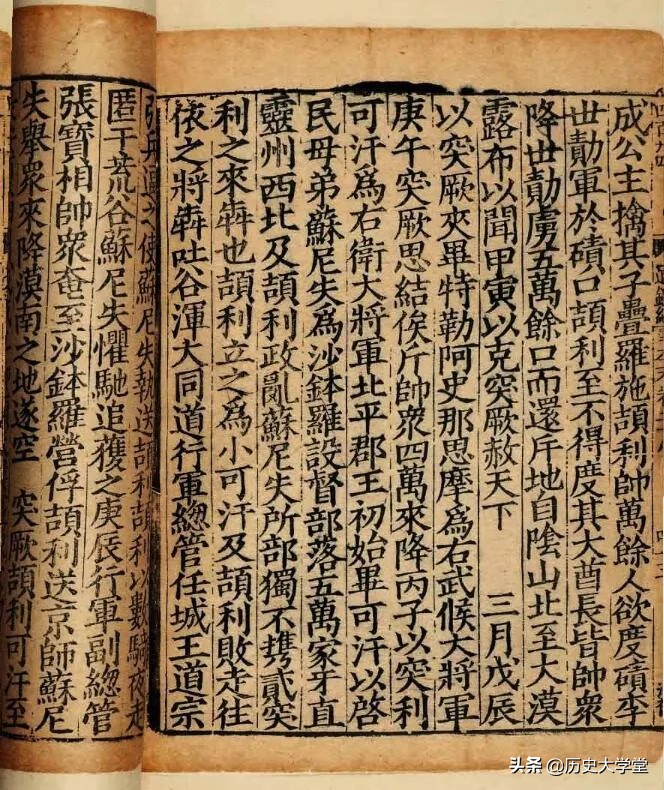 成公主擒其子疊羅施頡利帥萬餘人欲度磧李
世勣軍於磧口頡利至不得度其大酋長皆帥衆
降世勣虜五萬餘口而還斥地自陰山北至大漠
露布以聞甲寅以克突厥赦天下　三月戊辰
以突厥夾畢特勒阿史那思摩爲右武候大將軍
庚午突厥思結俟斤帥衆四萬來降丙子以突利
可汗爲右衛大將軍北平郡王初始畢可汗以啓
民母弟蘇尼失爲沙鉢羅設督部落五萬家牙直
靈州西北及頡利政亂蘇尼失所部獨不攜貳突
利之來犇也頡利立之爲小可汗及頡利敗走往
依之將犇吐谷渾大同道行軍總管任城王道宗
兵逼之使蘇尼失執送頡利頡利以數騎夜走
匿于荒谷蘇尼失懼馳追獲之庚辰行軍副總管
張寶相帥衆奄至沙鉢羅營俘頡利送京師蘇尼
失舉衆來降漠南之地遂空　突厥頡利可汗至
头条 @历史大学堂